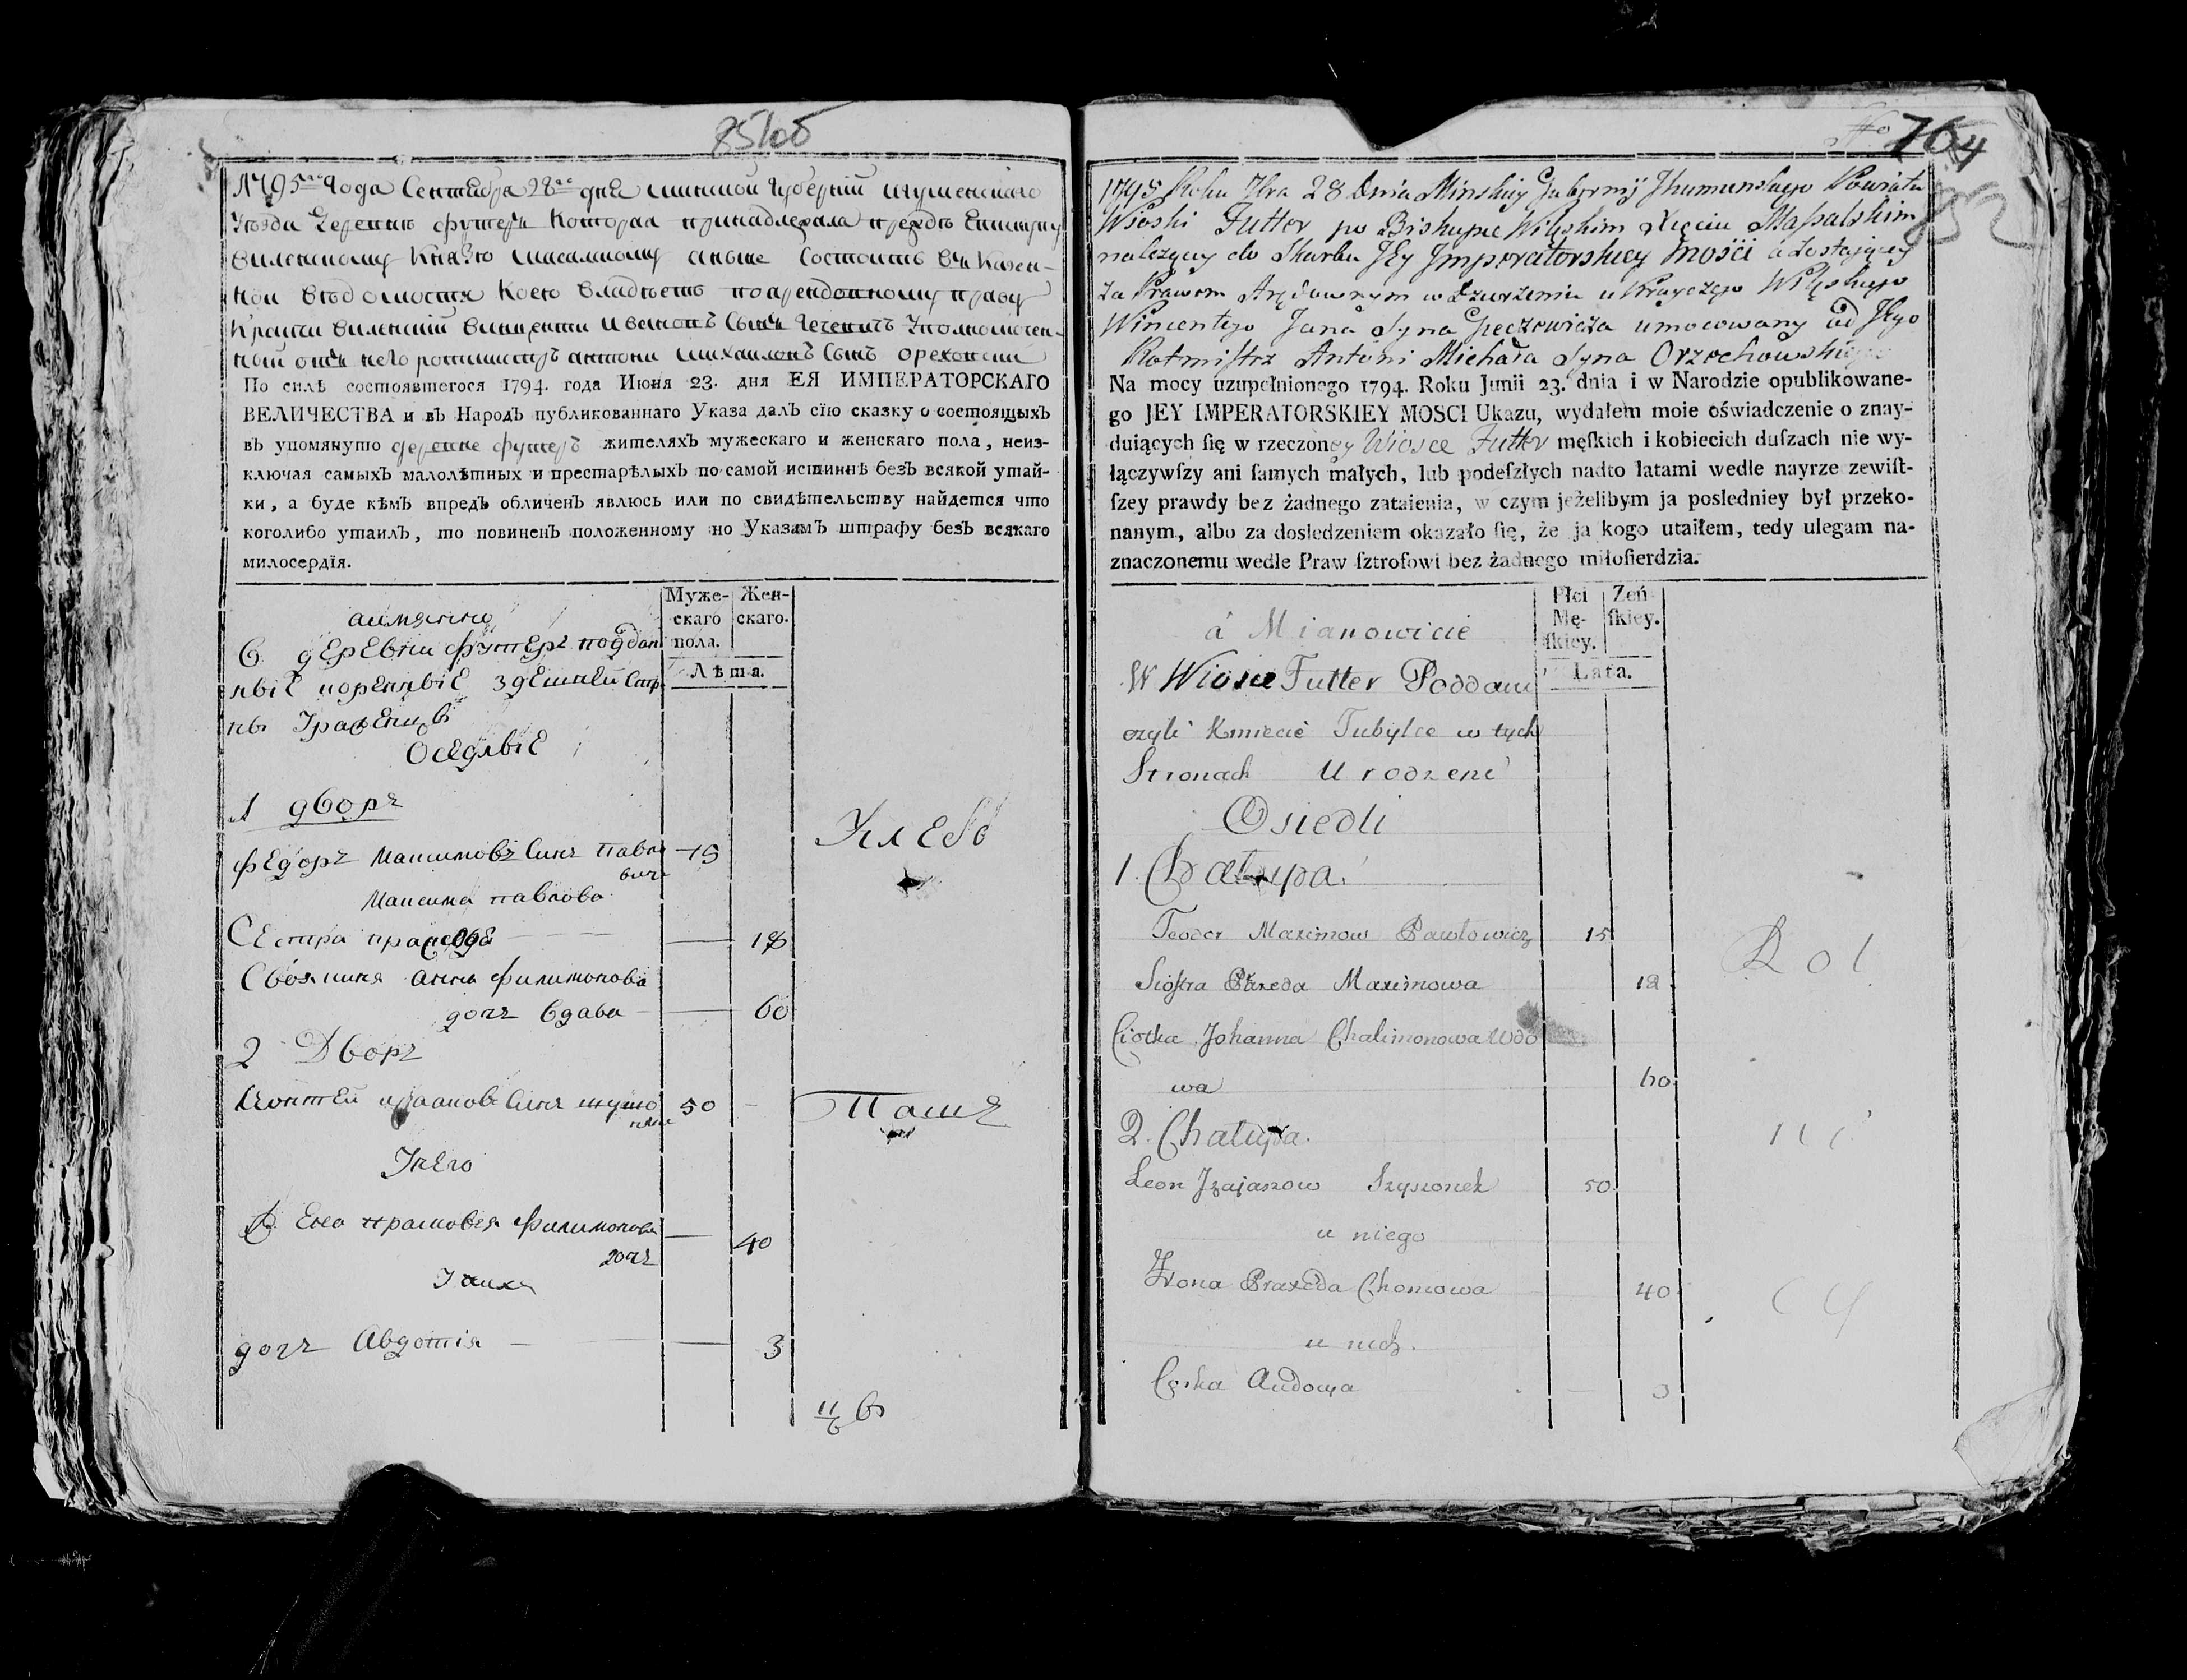 85 об
1795го Года Сентября 28го дня Минской Губернии Игуменского
Уезда Деревни футеръ Которая принадлежала прежде Епискупу
Виленскому Князю Масалскому аныне Состоитъ въ Казен-
ной вѣдомости Коею владѣетъ поарендовному праву
Винценти Ивановъ Сынъ Геченичъ Уполномочен-
ный отъ него ротмистръ антони Михаиловъ Сынъ Ореховски
По силѣ состоявшегося 1794. года Июня 23. дня ЕЯ ИМПЕРАТОРСКАГО
ВЕЛИЧЕСТВА и въ Народъ публикованнаго Указа далъ сїю сказку о состоящыхъ
въ упомянуто деревне футеръ жителяхъ мужескаго и женскаго пола, неиз-
ключая самыхъ малолѣтныхъ и престарѣлыхъ по самой истиннѣ безъ всякой утай-
ки, а буде кѣмъ впредъ обличенъ явлюсь или по свидѣтельству найдется что
коголибо утаилъ, то повиненъ положенному но Указамъ штрафу безъ всякаго
милосердїя.
Муже-скаго пола.
Жен-скаго.
Лѣта.
аимянно
В деревни футеръ поддан
ные коренные здешней Стор
ны Уроженцы
Оседлые
1 дворъ
федоръ Максимовъ Синъ Павло
вичъ 15
Максима павлова
Сестра праседа 18
Своякиня анна филимонова
дочь вдава 60
2 Дворъ
Сынъ шушо 50
Унего
Ж. Ево прасковея филимонова
дочь 40
Уних
дочь Авдотия 3
11/6
764
1795 Roku 7bra 28 Dnia Minskiey Gubernij Jhumenskego Powiatu
Wioski Futter po Biskupie Wileńskim Xięciu Massalskim
należący do Skarbu Jey Jmperatorskiey Mości á zostający
za Prawem Arędownym w Dzierżeniu u Krayczego Wileńskiego
Wincentego Jana Syna Gieczewicza umocowany od Jego
Rotmistrz Antoni Michała Syna Orzechowskiego
Na mocy uzupełnionego 1794. Roku Junii 23. dnia i w Narodzie opublikowane-
go JEY IMPERATORSKIEY MOSCI Ukazu, wydałem moie oświadczenie o znay-
duiących ſię w rzeczoney Wiosce Futter męſkich i kobiecich duſzach nie wy-
łączywſzy ani ſamych małych, lub podeſzłych nadto latami wedle nayrze zewiſt-
ſzey prawdy bez żadnego zataienia, w czym jeżelibym ja posledniey był przeko-
nanym, albo za dosledzeniem okazało ſię, że ja kogo utaiłem, tedy ulegam na-
znaczonemu wedle Praw ſztrofowi bez żadnego miłoſierdzia.
Płci Mę-ſkiey.
Zeń-ſkiey.
Lata.
á Mianowicie
W Wiosce Futter Poddani
czyli Kmiecie Tubylce w tych
Stronach Urodzeni
Osiedli
1. Chałupa
Teodor Maximow Pawłowicz 15
Siostra Praxeda Maximowa 18
Ciotka Johanna Chalimonowa Wdo
wa 60
2. Chałupa.
Leon Jzajaszow Szyszonek 50
u niego
Żona Praxeda Chomowa 40
u nich.
Córka Audocya 3